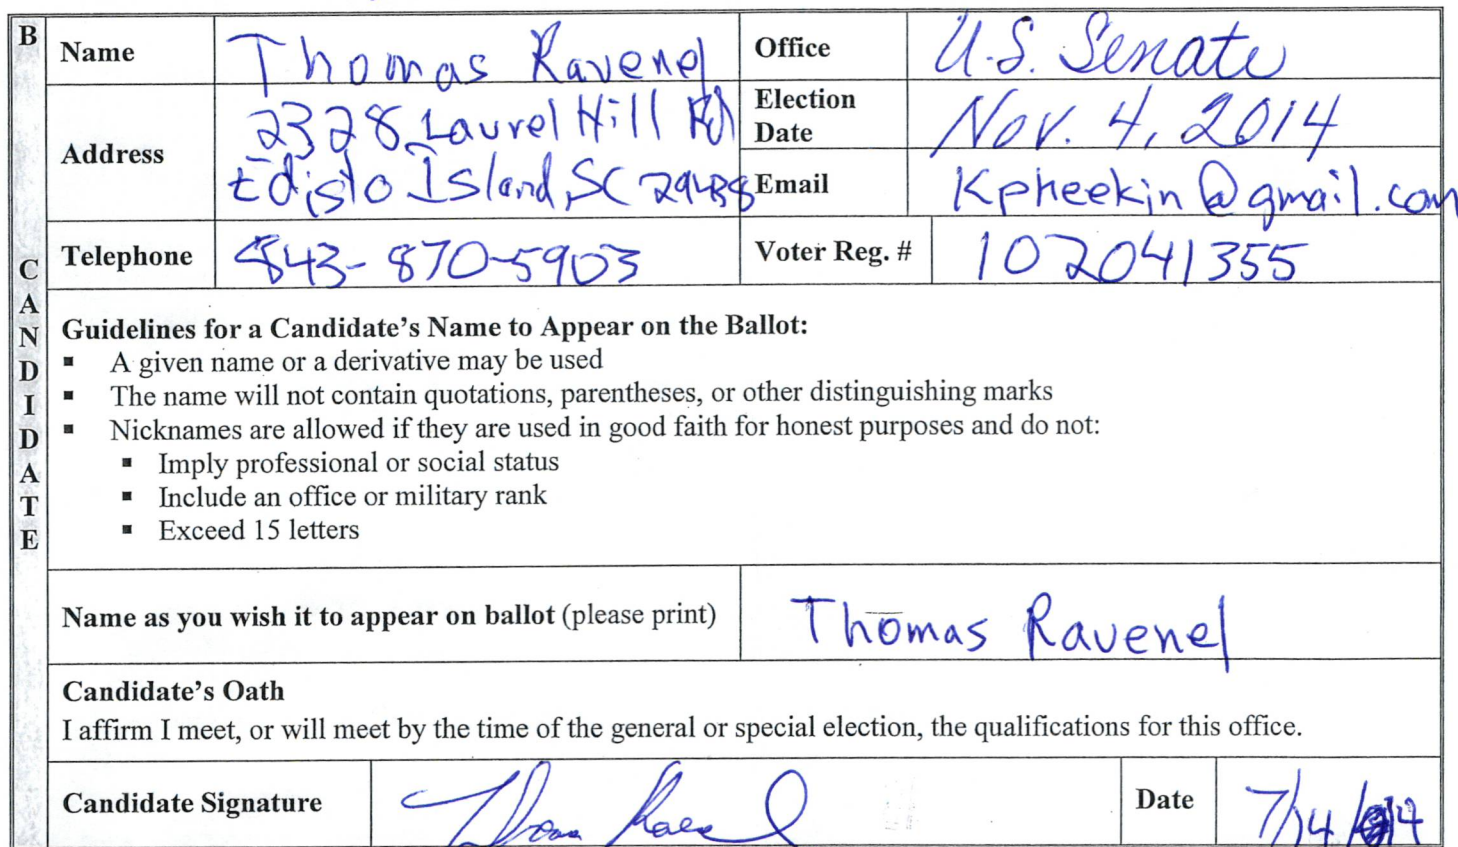 B
CANDIDATE
Name
Thomas Ravenel
Office
U.S. Senate
Address
2328 Laurel Hill Rd
Edisto Island, SC 29438
Election
Date
Nov. 4, 2014
Email
Kpheekin@gmail.com
Telephone
843-870-5903
Voter Reg. #
102041355
Guidelines for a Candidate's Name to Appear on the Ballot:
▪ A given name or a derivative may be used
▪ The name will not contain quotations, parentheses, or other distinguishing marks
▪ Nicknames are allowed if they are used in good faith for honest purposes and do not:
▪ Imply professional or social status
▪ Include an office or military rank
▪ Exceed 15 letters
Name as you wish it to appear on ballot (please print)
Thomas Ravenel
Candidate's Oath
I affirm I meet, or will meet by the time of the general or special election, the qualifications for this office.
Candidate Signature
Date
7/14/14